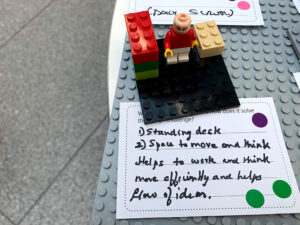 (Dave Scruton)
does it solve
challenge?
1) Standing desk
2) Space to move and think
Helps to work and think
more efficiently and helps
flow of ideas.